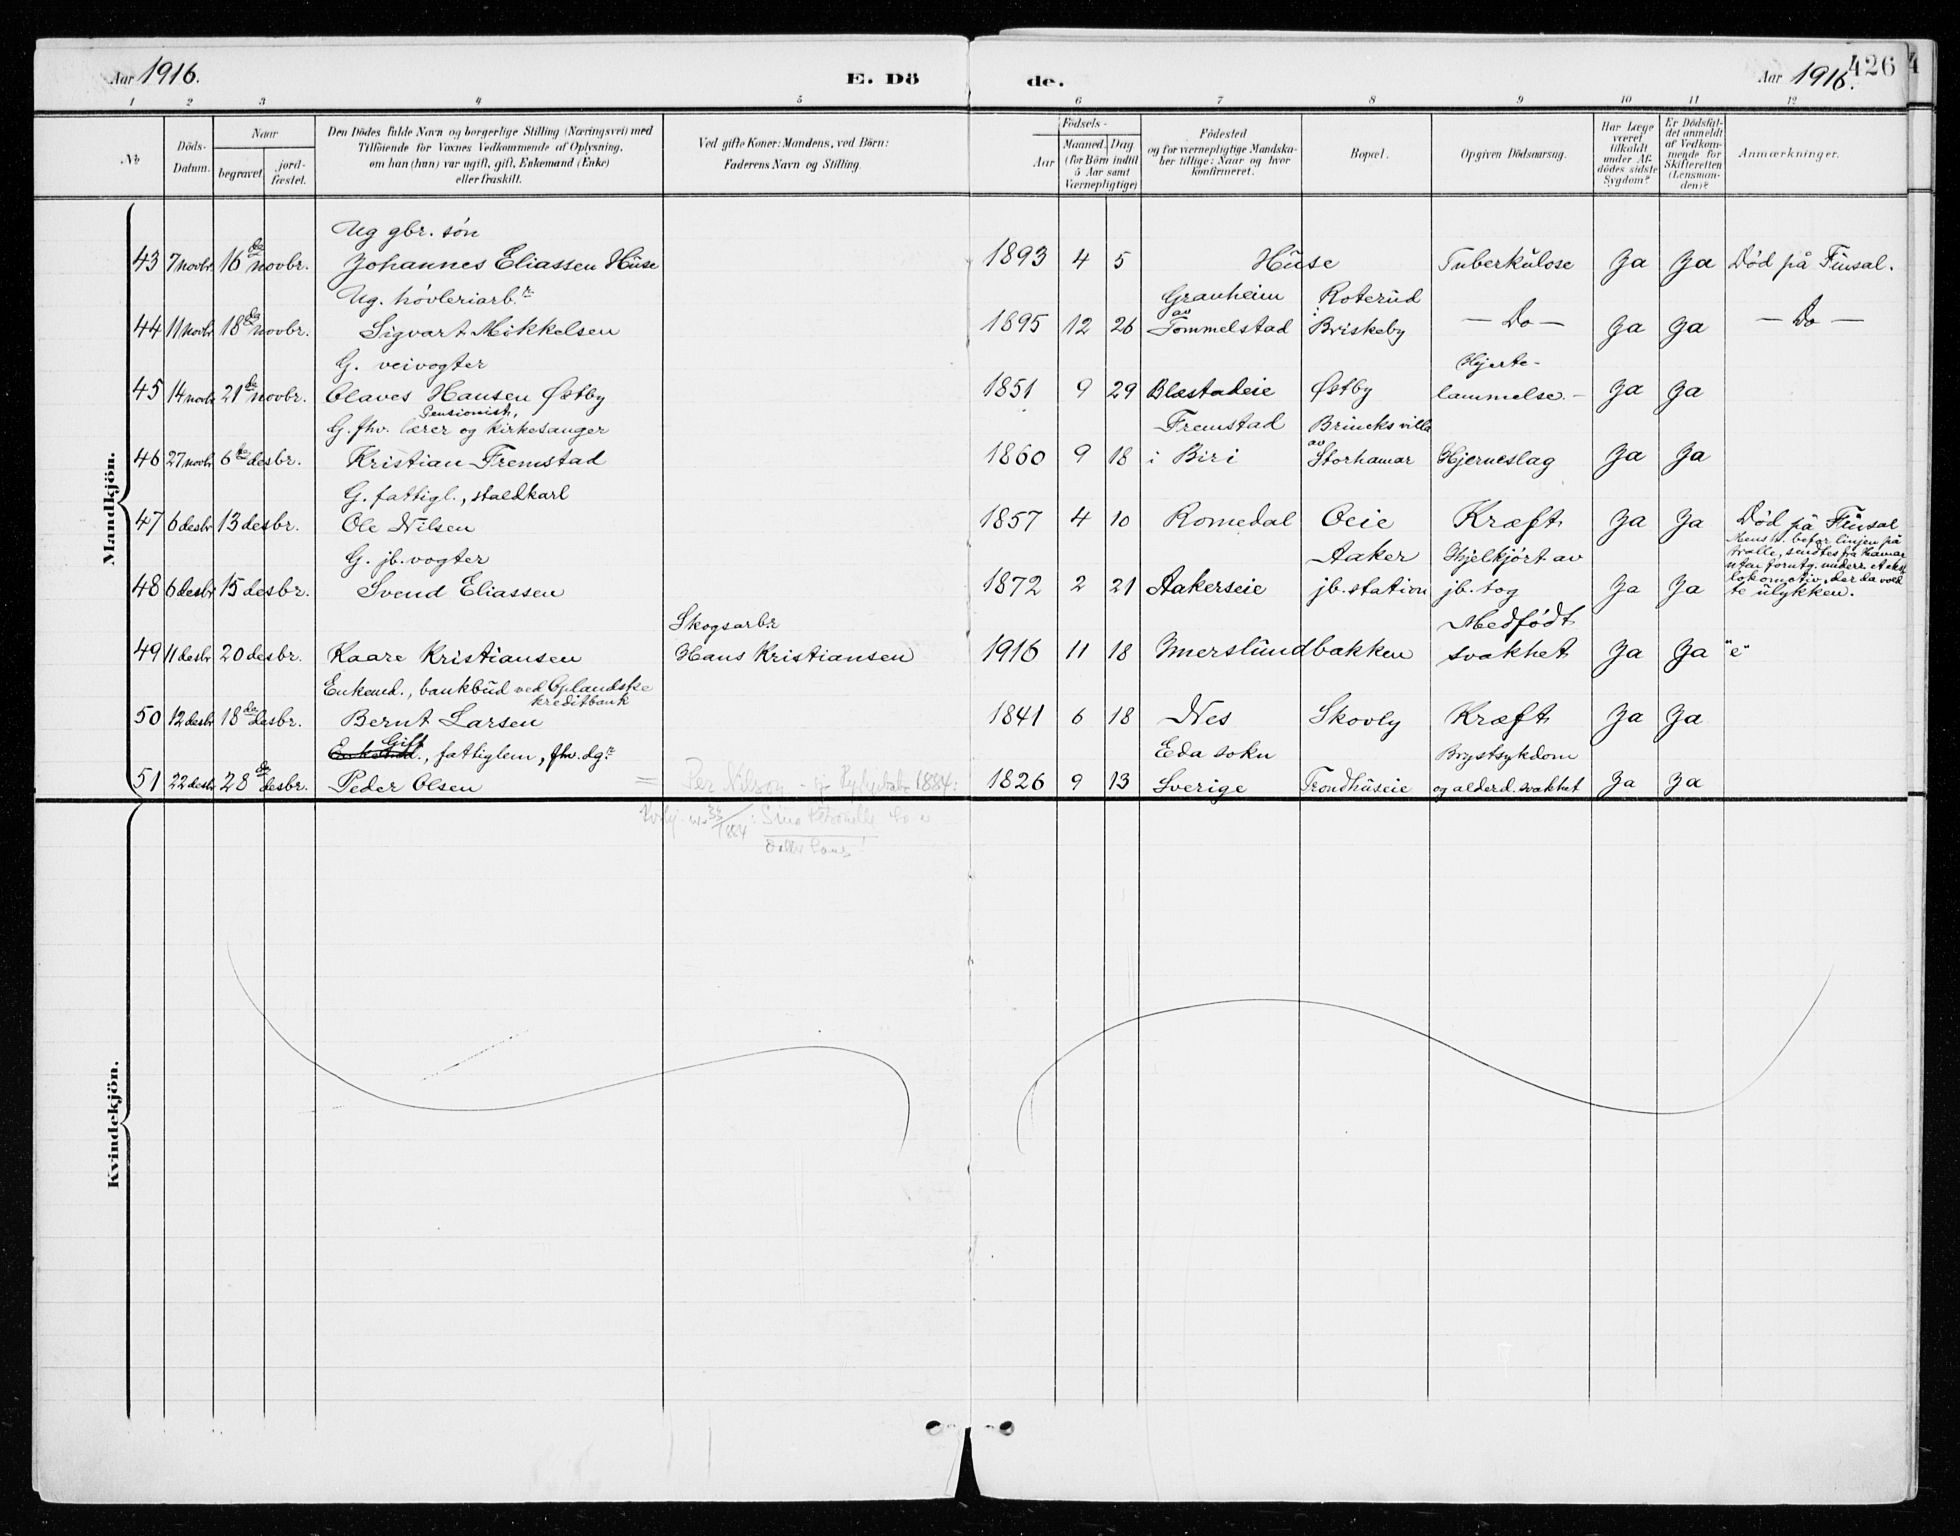 Aar 1916.
E. Dö
de.
Aar 1916.
426
1 2 3 4 5 6 7 8 9 10 11 12
No
Döds-
Datum.
Naar
begravet.
jord-
fæstet.
Den Dödes fulde Navn og borgerlige Stilling (Næringsvei) med
Tilföiende for Voxnes Vedkommende af Oplysning,
om han (hun) var ugift, gift, Enkemand (Enke)
eller fraskilt.
Ved gifte Koner: Mandens, ved Börn:
Faderens Navn og Stilling.
Födsels-
Aar
Maaned. Dag
(for Börn indtil
5 Aar samt
Værnepligtige)
Födested
og for værnepligtige Mandska-
ber tillige: Naar og hvor
konfirmeret.
Bopæl.
Opgiven Dödsaarsag.
Har Læge
været
tilkaldt
under Af-
dödes sidste
Sygdom?
Er Dödsfal-
det anmeldt
af Vedkom-
mende for
Skifteretten
(Lensman-
den)?
Anmærkninger.
Mandkjön.
Ug gbr. søn
43 7 novbr. 16de novbr. Johannes Eliassen Huse 1893 4 5 Huse Tuberkulose Ja Ja Død på Finsal.
Ug. høvleriarb.r Granheim Roterud
44 11 novbr 18de novbr. Sigvart Mikkelsen 1895 12 26 av Tommelstad Briskeby — Do — Ja Ja — Do —
G. veivogter Hjerte-
45 14 novbr 21de novbr. Olaves Hansen Østby 1851 9 29 Blæstadeie Østby lammelse. - Ja Ja
Pensionist,
G. fhv. lærer og kirkesanger Fremstad Brincks villa
46 27 novbr 6te desbr. Kristian Fremstad 1860 9 18 i Biri av Storhamar Hjerneslag Ja Ja
G. fattigl., staldkarl
47 6 desbr 13 desbr. Ole Nilsen 1857 4 10 Romedal Oeie Kræft Ja Ja Død på Finsal
G. jb. vogter Aaker Ihjelkjørt av
48 6 desbr 15 desbr. Svend Eliassen 1872 2 21 Aakerseie jb. station jb. tog Ja Ja
Mens h. befor linjen på
tralle, sendtes fra Hamar
uten forutg. underr. et eks.
lokomotiv, der da vold
te ulykken.
Skogsarbr Medfødt
49 11 desbr 20 desbr. Kaare Kristiansen Hans Kristiansen 1916 11 18 Imerslundbakken svakhet Ja Ja "e"
Enkemd., bankbud ved Oplandske
kreditbank
50 12 desbr 18de desbr. Bernt Larsen 1841 6 18 Nes Skovly Kræft Ja Ja
Gift
Enkemd., fattiglem, fhv. dg.r Eda sokn Brystsykdom
51 22 desbr 28de desbr. Peder Olsen = Per Nilson 1884: 1826 9 13 Sverige Trondhuseie og alderd. svakhet Ja Ja
33/1884
Kvindekjön.